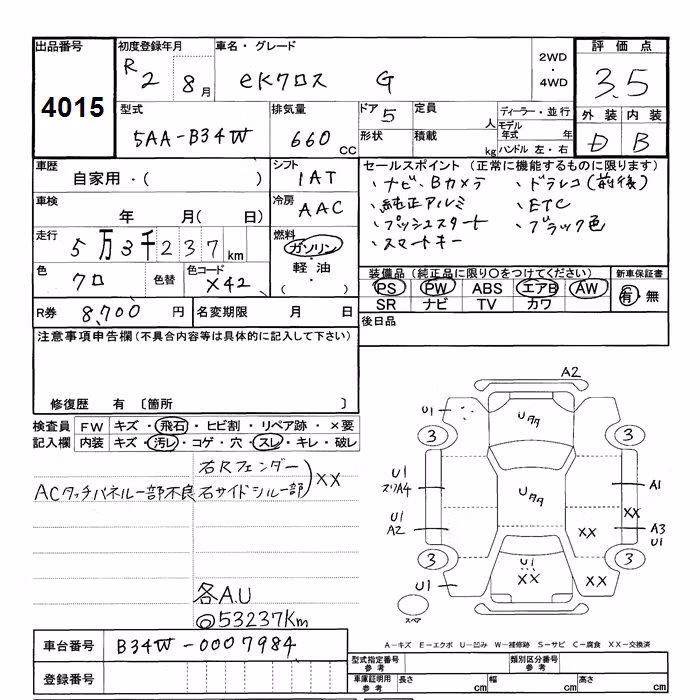 出品番号
4015
初度登録年月
R 2 8月
車名・グレード
eKクロス G
2WD
・
4WD
評価点
3.5
外装 内装
D B
型式
5AA-B34W
排気量
660 CC
ドア 5
形状
定員 人
積載 kg
ディーラー・並行
モデル年式 年
ハンドル 左・右
車歴
自家用・( )
シフト
1AT
車検
年 月( 日)
冷房
AAC
走行
5万3千237km
燃料
ガソリン
・
軽油
・
( )
色
クロ
色替
色コード
X42
R券 8,700 円
名変期限 月 日
セールスポイント(正常に機能するものに限ります)
・ナビ、Bカメラ ・ドラレコ(前後)
・純正アルミ ・ETC
・プッシュスタート ・ブラック色
・スマートキー
装備品(純正品に限り○をつけてください)
PS PW ABS エアB AW
SR ナビ TV カワ
新車保証書
有・無
後日品
注意事項申告欄(不具合内容等は具体的に記入して下さい)
修復歴 有〔箇所 〕
検査員記入欄
FW キズ・飛石・ヒビ割・リペア跡・×要
内装 キズ・汚レ・コゲ・穴・スレ・キレ・破レ
右Rフェンダー
ACタッチパネル一部不良 右サイドシル一部)XX
各A.U
◎53237Km
A2
U1
Uタタ
3
3
U1
スリA4
Uタタ
A1
U1
A2
XX
XX
A3
U1
3
U1
XX
XX
3
U1
スペア
A-キズ E-エクボ U-凹み W-補修跡 S-サビ C-腐食 XX-交換済
車台番号
B34W-0007984
登録番号
型式指定番号
参考
類別区分番号
参考
車庫証明用
参考
長さ cm
幅 cm
高さ cm